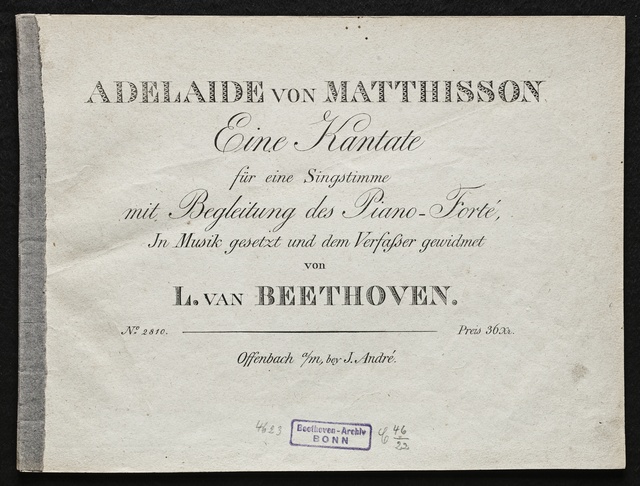 ADELAIDE VON MATTHISSON
Eine Kantate
für eine Singstimme
mit Begleitung des Piano-Forté,
In Musik gesetzt und dem Verfaſser gewidmet
von
L. VAN BEETHOVEN.
No. 2810. Preis 36 Xr.
Offenbach a/m, bey J. André.
4623
Beethoven-Archiv
BONN
46
22